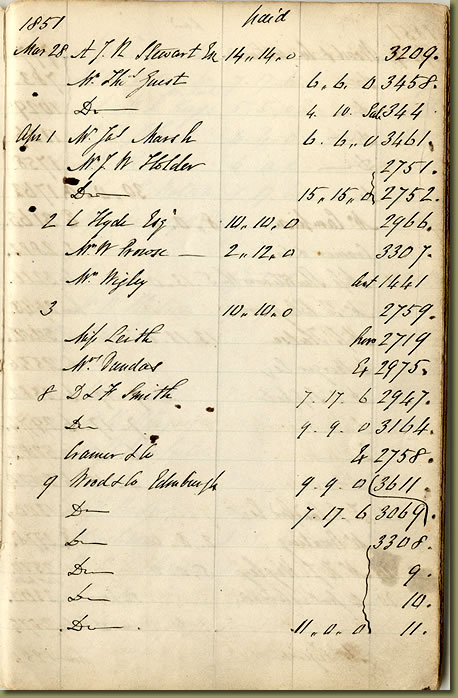 1851 paid
Mar 28 A J R Stewart Esq 14,, 14,, 0 3209.
Mr Thos Guest 6.. 6.. 0 3458.
Do 4. 10. 344
Apr 1 Mr Jas Marsh 6.. 6,, 0 3461.
Mr J W Holder 2751.
Do 15,, 15,, 0 2752.
2 C Hyde Esqr 10,, 10,, 0 2966.
Mr W Prowse — 2,, 12,, 0 3307.
Mr Wigley 1441
3 10,, 10,, 0 2759.
Miss Leith 2719
Mrs Dundas Ex 2975.
8 D & F Smith 7. 17. 6 2947.
Do 9. 9. 0 3164.
Cramer & Co Ex 2758.
9 Wood & Co Edinburgh 9.. 9.. 0 3611.
Do 7.. 17.. 6 3069.
Do 3308.
Do 9.
Do 10.
Do 11,, 0,, 0 11.